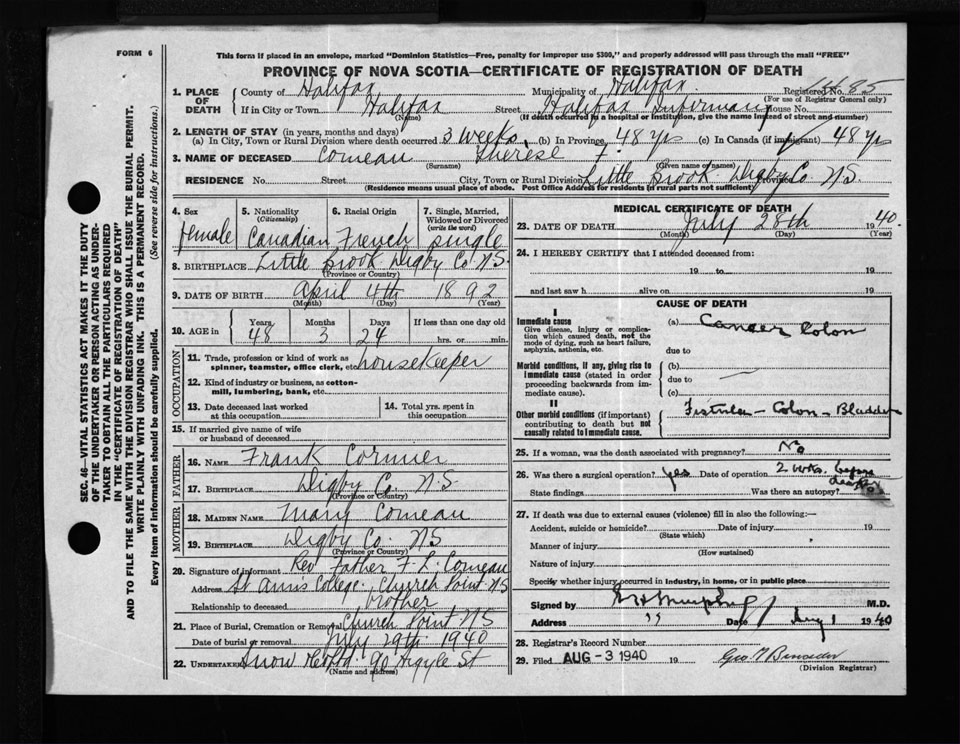 FORM 6
This form if placed in an envelope, marked "Dominion Statistics—Free, penalty for improper use $300," and properly addressed will pass through the mail "FREE"
PROVINCE OF NOVA SCOTIA—CERTIFICATE OF REGISTRATION OF DEATH
1. PLACE OF DEATH County of Halifax Municipality of Halifax Registered No. 85
(For use of Registrar General only)
If in City or Town Halifax Street Halifax Infirmary House No.
(Name) (If death occurred in a hospital or institution, give the name instead of street and number)
2. LENGTH OF STAY (in years, months and days)
(a) In City, Town or Rural Division where death occurred 3 weeks (b) In Province 48 yrs (c) In Canada (if immigrant) 48 yrs
3. NAME OF DECEASED Comeau Therese F.
(Surname) (Given name or names)
RESIDENCE No. Street City, Town or Rural Division Little Brook Digby Co. N.S. Province
(Residence means usual place of abode. Post Office Address for residents in rural parts not sufficient)
4. Sex female
5. Nationality (Citizenship) Canadian
6. Racial Origin French
7. Single, Married, Widowed or Divorced (write the word) single
8. BIRTHPLACE Little Brook Digby Co N.S.
(Province or Country)
9. DATE OF BIRTH April 4th 1892
(Month) (Day) (Year)
10. AGE in Years 48 Months 3 Days 24 If less than one day old hrs. or min.
OCCUPATION
11. Trade, profession or kind of work as spinner, teamster, office clerk, etc. housekeeper
12. Kind of industry or business, as cotton-mill, lumbering, bank, etc.
13. Date deceased last worked at this occupation
14. Total yrs. spent in this occupation
15. If married give name of wife or husband of deceased
FATHER
16. Name Frank Cormier
17. Birthplace Digby Co. N.S.
(Province or Country)
MOTHER
18. MAIDEN NAME Mary Comeau
19. BIRTHPLACE Digby Co. NS
(Province or Country)
20. Signature of informant Rev Father F. L. Comeau
Address St Ann's College Church Point NS
Relationship to deceased brother
21. Place of Burial, Cremation or Removal Church Point NS
Date of burial or removal July 29th 1940
22. UNDERTAKER Snow 90 Argyle St
(Name and address)
MEDICAL CERTIFICATE OF DEATH
23. DATE OF DEATH July 28th 1940.
(Month) (Day) (Year)
24. I HEREBY CERTIFY that I attended deceased from:
19 to 19
and last saw h alive on 19
CAUSE OF DEATH
I
Immediate cause
Give disease, injury or complication which caused death, not the mode of dying, such as heart failure, asphyxia, asthenia, etc.
(a) Cancer Colon
due to
Morbid conditions, if any, giving rise to immediate cause (stated in order proceeding backwards from immediate cause).
(b)
due to
(c)
II
Other morbid conditions (if important) contributing to death but not causally related to immediate cause.
Fistula - Colon - Bladder
25. If a woman, was the death associated with pregnancy? No
26. Was there a surgical operation? yes Date of operation 2 wks. before death
State findings Was there an autopsy? No
27. If death was due to external causes (violence) fill in also the following:—
Accident, suicide or homicide? Date of injury 19
(State which)
Manner of injury
(How sustained)
Nature of injury
Specify whether injury occurred in industry, in home, or in public place
Signed by Murphy M.D.
Address " Date Aug 1 1940
28. Registrar's Record Number
29. Filed AUG -3 1940 19
(Division Registrar)
SEC. 46—VITAL STATISTICS ACT MAKES IT THE DUTY
OF THE UNDERTAKER OR PERSON ACTING AS UNDER-
TAKER TO OBTAIN ALL THE PARTICULARS REQUIRED
IN THE "CERTIFICATE OF REGISTRATION OF DEATH"
AND TO FILE THE SAME WITH THE DIVISION REGISTRAR WHO SHALL ISSUE THE BURIAL PERMIT.
WRITE PLAINLY WITH UNFADING INK. THIS IS A PERMANENT RECORD.
Every item of information should be carefully supplied. (See reverse side for instructions.)